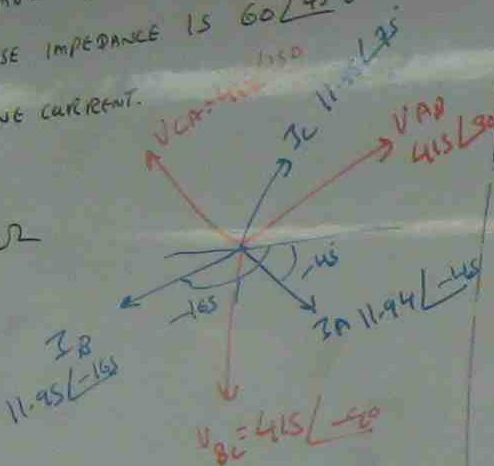 SE IMPEDANCE IS 60∠45
NE CURRENT.
Ω
VCA=
∠150
IC 11.95∠75
VAB
415∠30
-45
-165
IA 11.94∠-45
IB
11.95∠-165
VBC=415∠-90